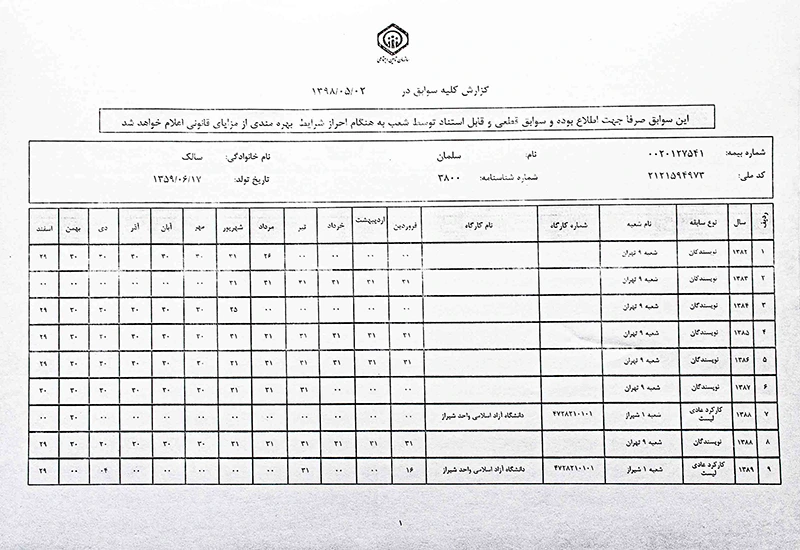 سازمان تأمین اجتماعی
گزارش کلیه سوابق در ۱۳۹۸/۰۵/۰۲
این سوابق صرفا جهت اطلاع بوده و سوابق قطعی و قابل استناد توسط شعب به هنگام احراز شرایط بهره مندی از مزایای قانونی اعلام خواهد شد
شماره بیمه: ۰۰۲۰۱۲۷۵۴۱ نام: سلمان نام خانوادگی: سالک
کد ملی: ۲۱۲۱۵۹۴۹۷۳ شماره شناسنامه: ۳۸۰۰ تاریخ تولد: ۱۳۵۹/۰۶/۱۷
ردیف سال نوع سابقه نام شعبه شماره کارگاه نام کارگاه فروردین اردیبهشت خرداد تیر مرداد شهریور مهر آبان آذر دی بهمن اسفند
۱ ۱۳۸۲ نویسندگان شعبه ۹ تهران ۰۰ ۰۰ ۰۰ ۰۰ ۲۶ ۳۱ ۳۰ ۳۰ ۳۰ ۳۰ ۳۰ ۲۹
۲ ۱۳۸۳ نویسندگان شعبه ۹ تهران ۳۱ ۳۱ ۳۱ ۳۱ ۳۱ ۳۱ ۰۰ ۰۰ ۰۰ ۰۰ ۰۰ ۰۰
۳ ۱۳۸۴ نویسندگان شعبه ۹ تهران ۰۰ ۰۰ ۰۰ ۰۰ ۰۰ ۲۵ ۳۰ ۳۰ ۳۰ ۳۰ ۳۰ ۲۹
۴ ۱۳۸۵ نویسندگان شعبه ۹ تهران ۳۱ ۳۱ ۳۱ ۳۱ ۳۱ ۳۱ ۳۰ ۳۰ ۳۰ ۳۰ ۳۰ ۲۹
۵ ۱۳۸۶ نویسندگان شعبه ۹ تهران ۳۱ ۳۱ ۳۱ ۳۱ ۳۱ ۳۱ ۳۰ ۳۰ ۳۰ ۳۰ ۳۰ ۲۹
۶ ۱۳۸۷ نویسندگان شعبه ۹ تهران ۰۰ ۰۰ ۰۰ ۳۱ ۳۱ ۳۱ ۳۰ ۳۰ ۳۰ ۳۰ ۳۰ ۳۰
۷ ۱۳۸۸ کارکرد عادی لیست شعبه ۱ شیراز ۴۷۲۸۲۱۰۱۰۱ دانشگاه آزاد اسلامی واحد شیراز ۰۰ ۰۰ ۰۰ ۰۰ ۰۰ ۰۰ ۰۰ ۰۰ ۰۰ ۰۰ ۳۰ ۰۰
۸ ۱۳۸۸ نویسندگان شعبه ۹ تهران ۳۱ ۳۱ ۳۱ ۳۱ ۳۱ ۳۱ ۳۰ ۳۰ ۳۰ ۳۰ ۳۰ ۲۹
۹ ۱۳۸۹ کارکرد عادی لیست شعبه ۱ شیراز ۴۷۲۸۲۱۰۱۰۱ دانشگاه آزاد اسلامی واحد شیراز ۱۶ ۰۰ ۰۰ ۳۱ ۰۰ ۰۰ ۰۰ ۰۰ ۰۰ ۰۴ ۰۰ ۲۹
۱